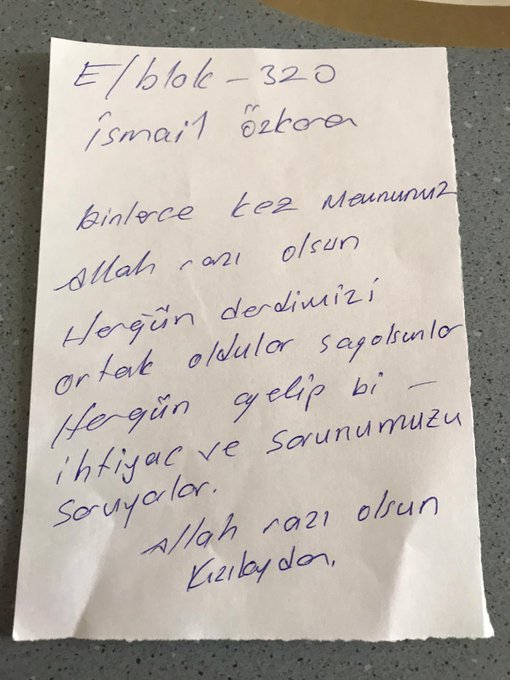 E/blok - 320
İsmail Özkara
Binlerce kez Memnunuz
Allah razı olsun
Hergün derdimizi
ortak oldular sagolsunlar
Hergün gelip bi -
ihtiyac ve sorunumuzu
soruyorlar.
Allah razı olsun
Kızılaydan.